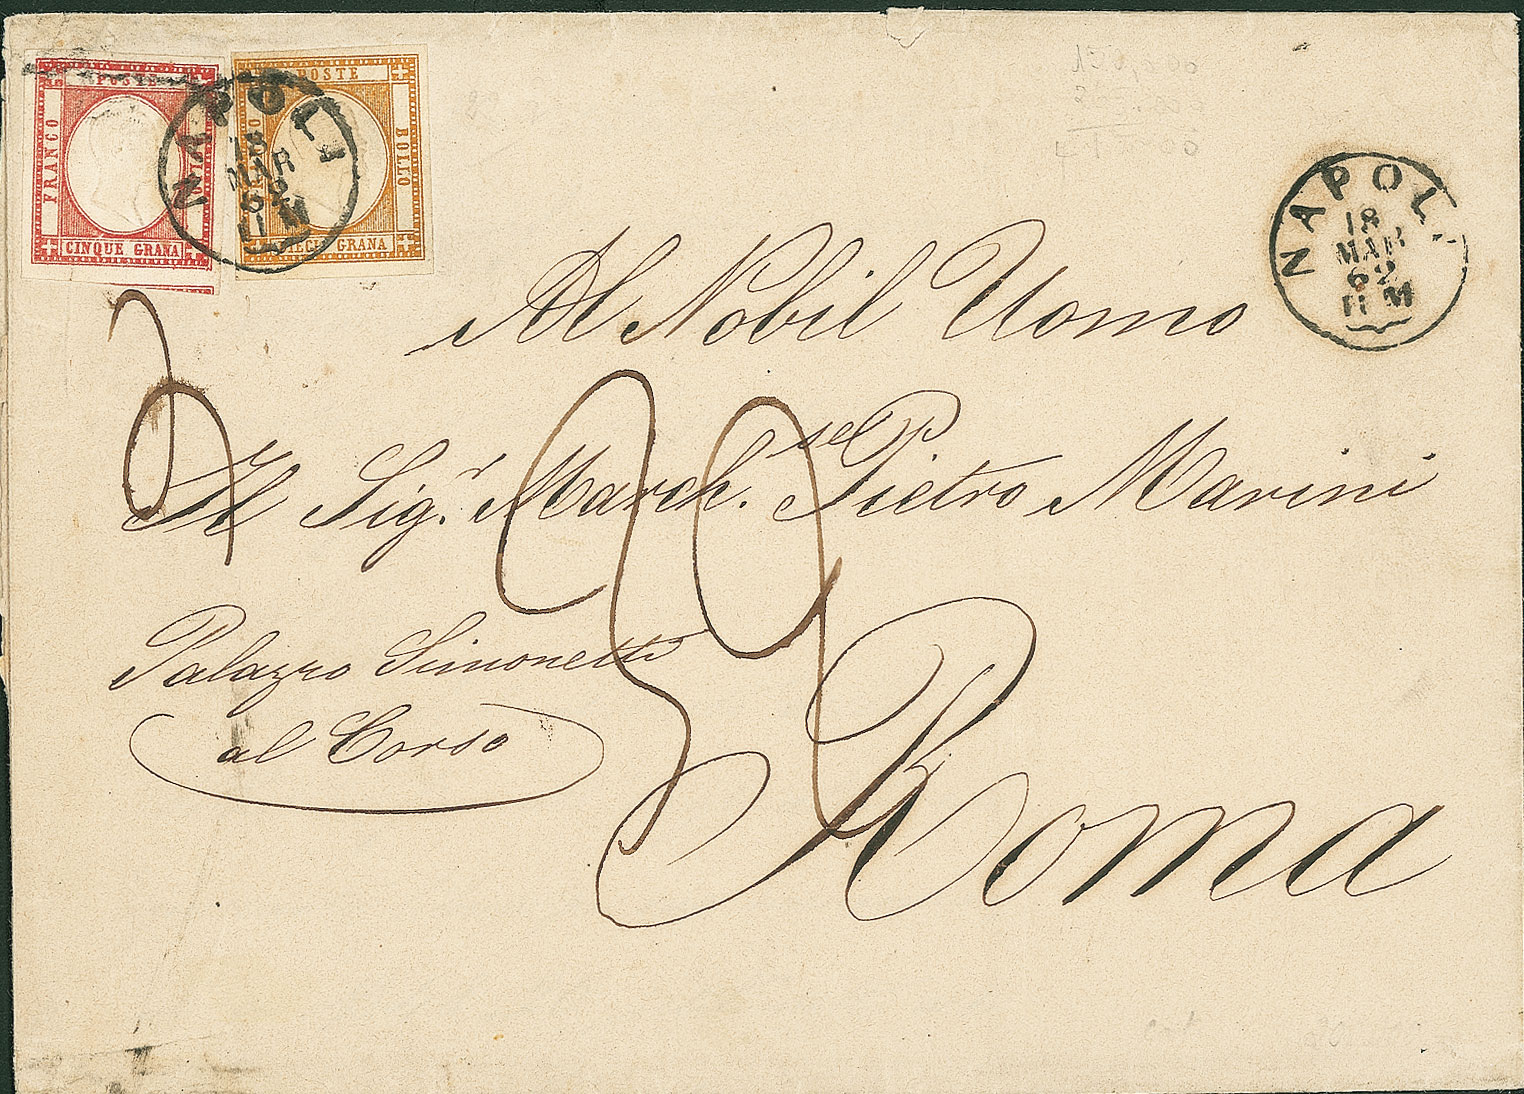 POSTE
FRANCO
CINQUE GRANA
POSTE
BOLLO
DIECI GRANA
NAPOLI
18
MAR
62
11 M
NAPOLI
18
MAR
62
11 M
Al Nobil Uomo
Il Sig.r March.se Pietro Marini
Palazzo Simonetti
al Corso
Roma